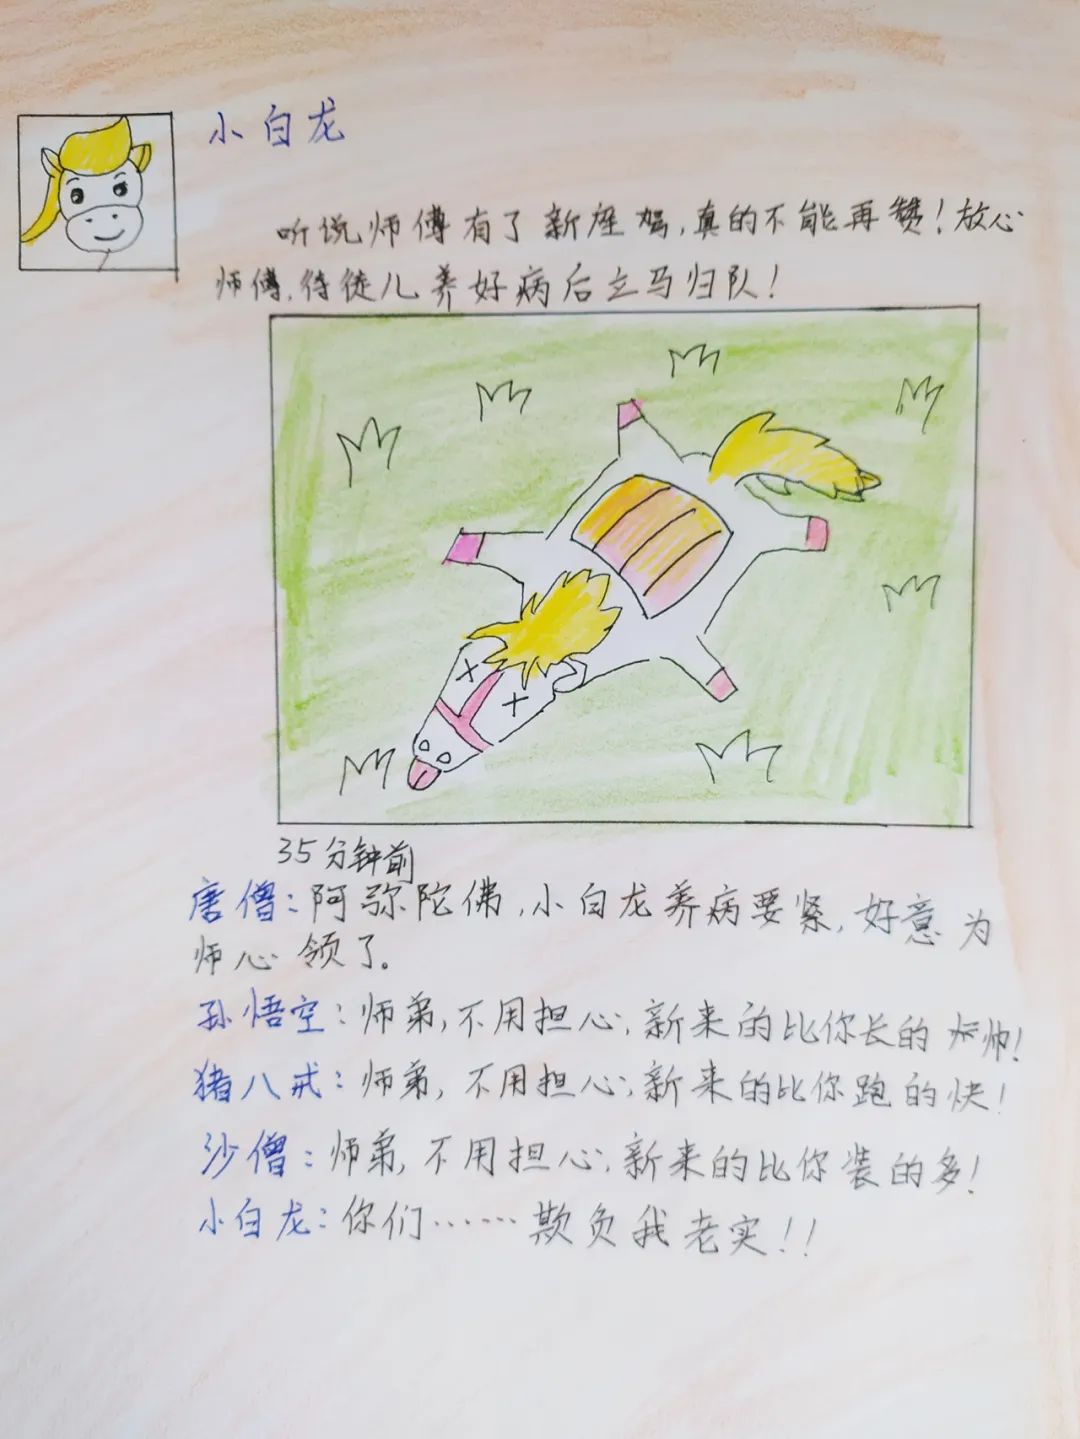 小白龙
听说师傅有了新座驾,真的不能再赞!放心
师傅,待徒儿养好病后立马归队!
35分钟前
唐僧:阿弥陀佛,小白龙养病要紧,好意为
师心领了。
孙悟空:师弟,不用担心,新来的比你长的帅!
猪八戒:师弟,不用担心,新来的比你跑的快!
沙僧:师弟,不用担心,新来的比你装的多!
小白龙:你们……欺负我老实!!